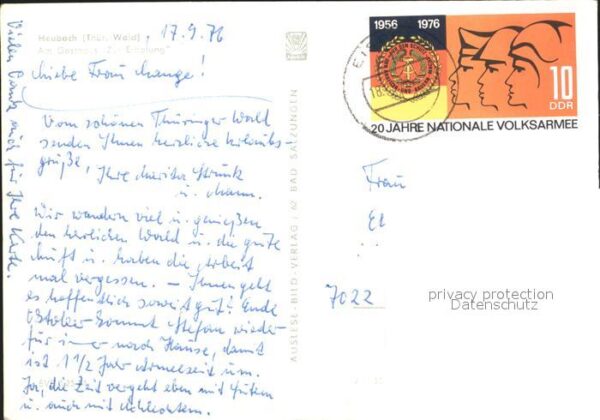 Heubach (Thür. Wald)
Am Gasthaus "Zur Erholung"
17.9.76
Liebe Frau Lange!
Vom schönen Thüringer Wald
senden Ihnen herzliche Urlaubs-
grüße, Ihre Marita Strunk
u. Mann.
Wir wandern viel u. genießen
den herrlichen Wald u. die gute
Luft u. haben die Arbeit
mal vergessen. — Ihnen geht
es hoffentlich soweit gut? Ende
Oktober kommt Stefan wieder
für immer nach Hause, damit
ist 1 1/2 Jahr Armeezeit um.
Ja, die Zeit vergeht eben mit Gutem
u. auch mit Schlechtem.
Vielen Dank auch für Ihre Karte.
AUSLESE-BILD-VERLAG / 62 BAD SALZUNGEN
1956 1976
10
DDR
20 JAHRE NATIONALE VOLKSARMEE
Frau
El
7022
privacy protection
Datenschutz